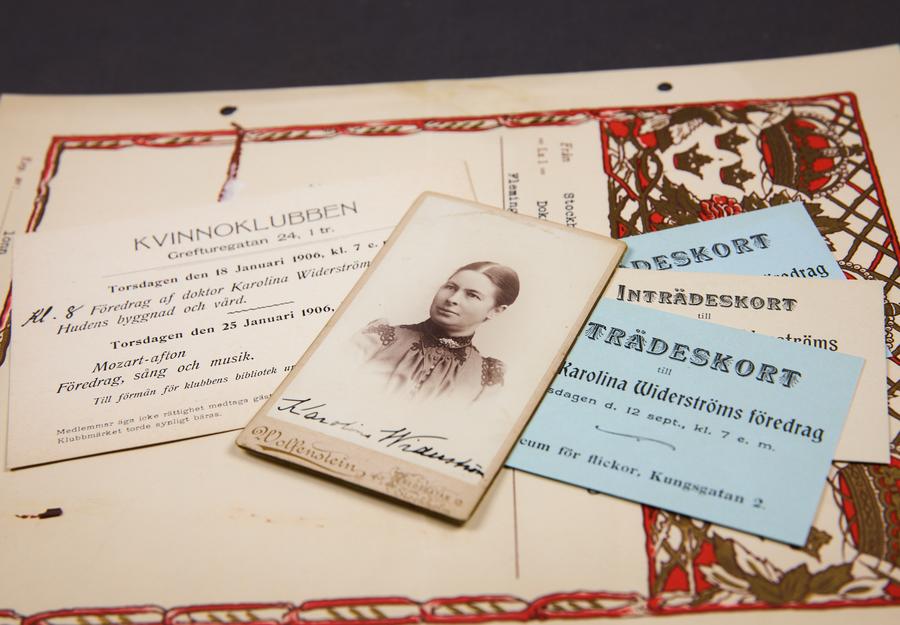 KVINNOKLUBBEN
Grefturegatan 24, 1 tr.
Torsdagen den 18 Januari 1906, kl. 7 e.
Kl. 8 Föredrag af doktor Karolina Widerström
Hudens byggnad och vård.
Torsdagen den 25 Januari 1906,
Mozart-afton
Föredrag, sång och musik.
Till förmån för klubbens bibliotek
Medlemmar äga icke rättighet medtaga
Klubbmärket torde synligt bäras.
Karolina Widerström
Wolfenstein
Från Stockh
Fleming
DESKORT
INTRÄDESKORT
till
TRÄDESKORT
till
Karolina Widerströms föredrag
sdagen d. 12 sept., kl. 7 e. m.
cum för flickor, Kungsgatan 2.